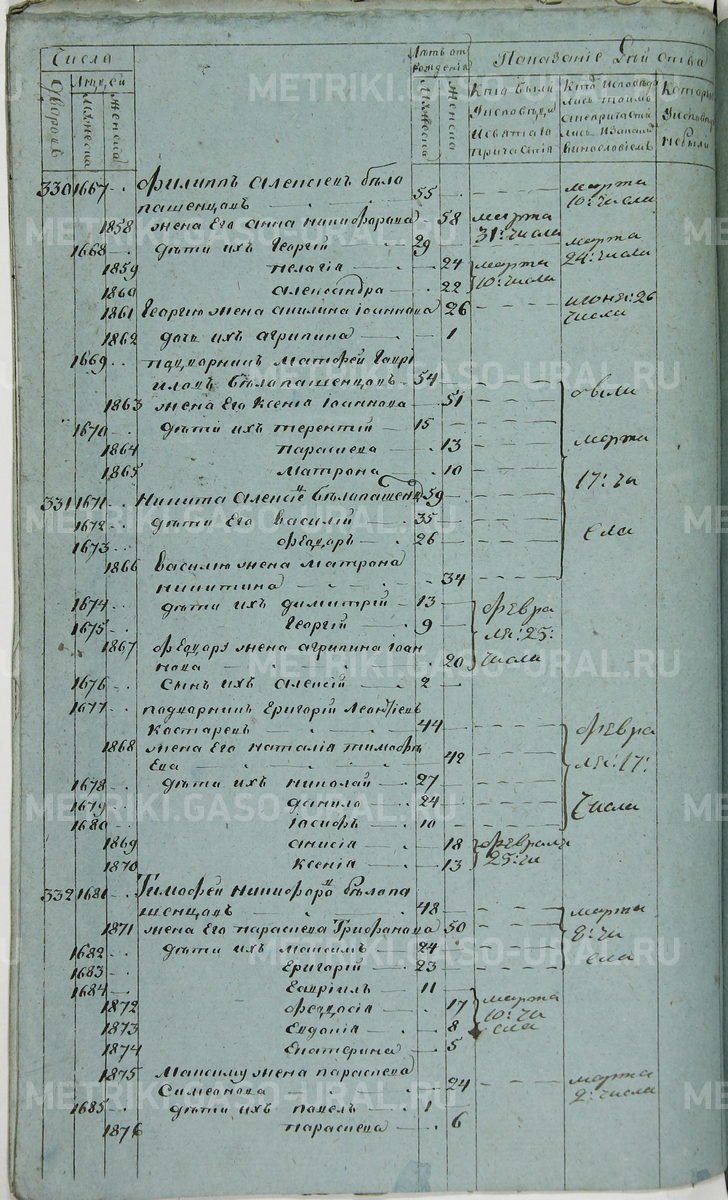 Числа
Лѣтъ от рожденія
Показаніе Дѣйства
Дворовъ
Людей
Мужеска
Женска
Мужеска
Женска
Кто были
у исповѣди
и святаго
причастія
Кто исповѣда
лись токмъ
Которые
у исповѣди
не были
330 1667 Филиппъ Алексѣевъ Бѣло
пашенцовъ 55 марта 10: числа
1858 жена Его Анна Никифорова 58 марта 31: числа
1668 дѣти ихъ Георгій 29 марта 24: числа
1859 Пелагія 24 марта
1860 Александра 22 10: числа
1861 Георгію жена Акилина Іоаннова 26 июня: 26 числа
1862 дочь ихъ Агрипина 1
1669 подворникъ Матфей Гаврі
иловъ Бѣлопашенцовъ 54
1863 жена Его Ксенія Іоаннова 51 обыли
1670 дѣти ихъ Терентій 15
1864 Параскева 13 марта
1865 Матрона 10
331 1671 Никита Алексіев Бѣлапашенц 59 17: чи
1672 дѣти Его Василій 35
1673 Федоръ 26 сла
1866 Василю жена Матрона
Никитина 34
1674 дѣти ихъ Димитрій 13 февра
1675 Георгій 9 ля: 25:
1867 Федору жена Агрипина Іоан
нова 20 числа
1676 сынъ ихъ Алексій 2
1677 подворникъ Григорій Леонтіевъ
Костаревъ 44 февра
1868 жена Его Наталія Тимофѣ
ева 42 ля: 17:
1678 дѣти ихъ Николай 27
1679 Данило 24 числа
1680 Іосифъ 10
1869 Анисія 18 февраля
1870 Ксенія 13 25: чи
332 1681 Тимофей Никифоров Бѣлопа
шенцовъ 48 марта
1871 жена Его Параскева Трифанова 50 8: чи
1682 дѣти ихъ Максимъ 24 сла
1683 Григорій 23
1684 Гавріилъ 11
1872 Федосія 17 марта
1873 Евдокія 8 10: чи
1874 Екатерина 5 сла
1875 Максиму жена Параскева
Симеонова 24 марта
1685 дѣти ихъ Павелъ 1 2: числа
1876 Параскева 6
METRIKI.GASO-URAL.RU